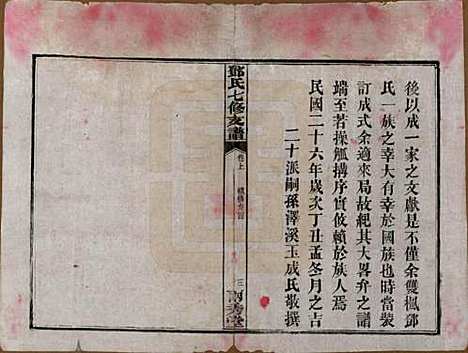 後以成一家之文獻是不僅余雙楓鄧
氏一族之幸大有幸於國族也時當裝
訂成式余適來局故紀其大畧弁之譜
端至若操觚搆序實攸賴於族人焉
民國二十六年歲次丁丑孟冬月之吉
二十派嗣孫澤溪玉成氏敬撰
鄧氏七修支譜
卷上
三